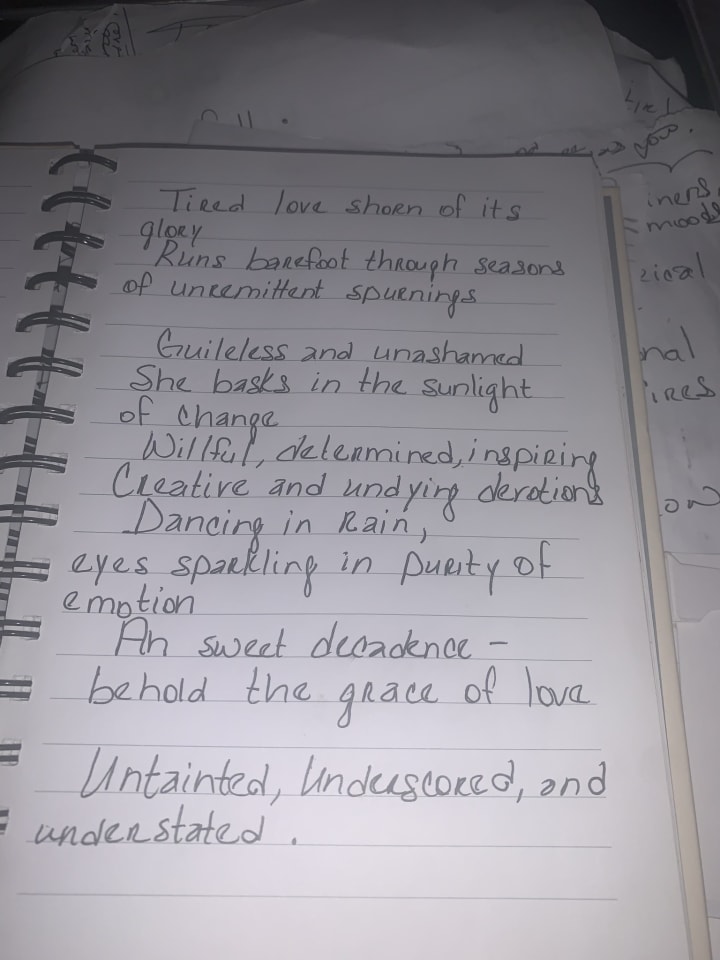 Tired love shorn of its
glory
Runs barefoot through seasons
of unremittent spurnings
Guileless and unashamed
She basks in the sunlight
of change
Willful, determined, inspiring
Creative and undying devotions
Dancing in Rain,
eyes sparkling in purity of
emotion
Ah sweet decadence -
behold the grace of love
Untainted, Underscored, and
understated.
you.
iners,
moods
zical
nal
ires
on